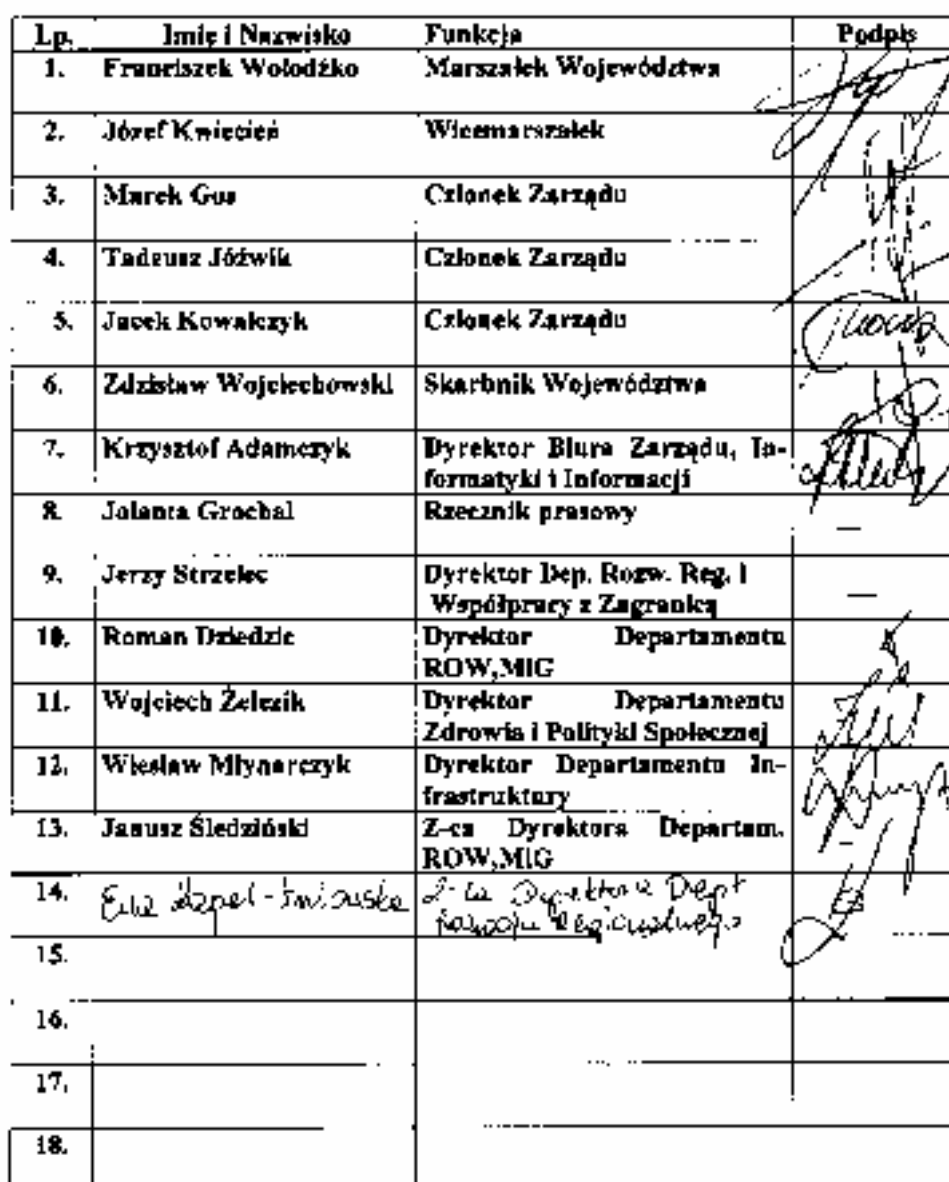 Lp. Imię i Nazwisko Funkcja Podpis
1. Franciszek Wołodźko Marszałek Województwa
2. Józef Kwiecień Wicemarszałek
3. Marek Gos Członek Zarządu
4. Tadeusz Jóźwik Członek Zarządu
5. Jacek Kowalczyk Członek Zarządu
6. Zdzisław Wojciechowski Skarbnik Województwa
7. Krzysztof Adamczyk Dyrektor Biura Zarządu, In-
formatyki i Informacji
8. Jolanta Grochal Rzecznik prasowy
9. Jerzy Strzelec Dyrektor Dep. Rozw. Reg. i
Współpracy z Zagranicą
10. Roman Dziedzic Dyrektor Departamentu
ROW,MIG
11. Wojciech Żelezik Dyrektor Departamentu
Zdrowia i Polityki Społecznej
12. Wiesław Młynarczyk Dyrektor Departamentu In-
frastruktury
13. Janusz Śledziński Z-ca Dyrektora Departam.
ROW,MIG
14. Ewa Z-ca Dyrektora Dept
Rozwoju Regionalnego
15.
16.
17.
18.